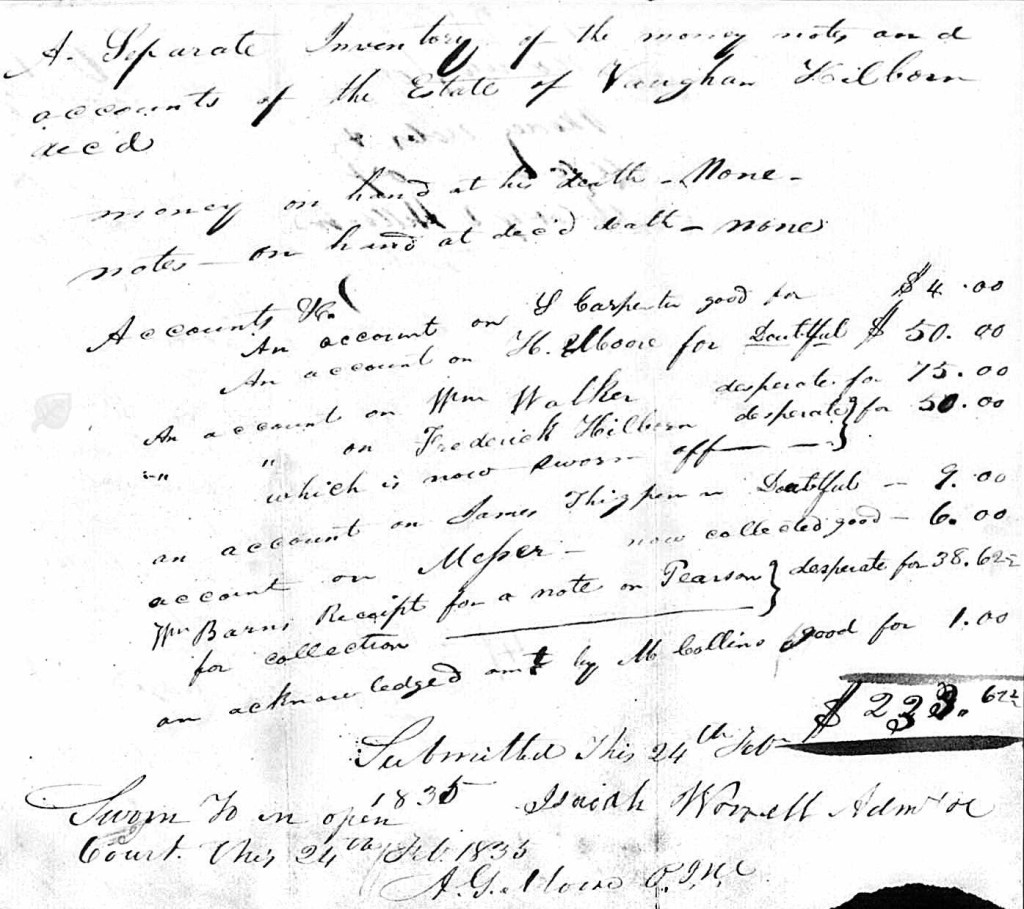 A Separate Inventory of the money notes and
accounts of the Estate of Vaughan Kilborn
decd
money on hand at his death - None -
notes - on hand at decd death - none
Accounts &c.
An account on S Carpenter good for $4.00
An account on H. Moore for Doutfful $50.00
An account on Wm Walker desperate for 75.00
" " on Frederick Kilborn desperate for 50.00
which is now sworn off
an account on James Thigpen Doutfful - 9.00
account on Messer - now collected good - 6.00
Wm Barns Receipt for a note on Pearson desperate for 38.62½
for collection
an acknowledged amt by M Collins good for 1.00
$ 233.62½
Submitted This 24th Feb
1835 Isaiah Worrell Admr &c
Sworn To in open
Court This 24th Feb. 1835
A. G. Moore